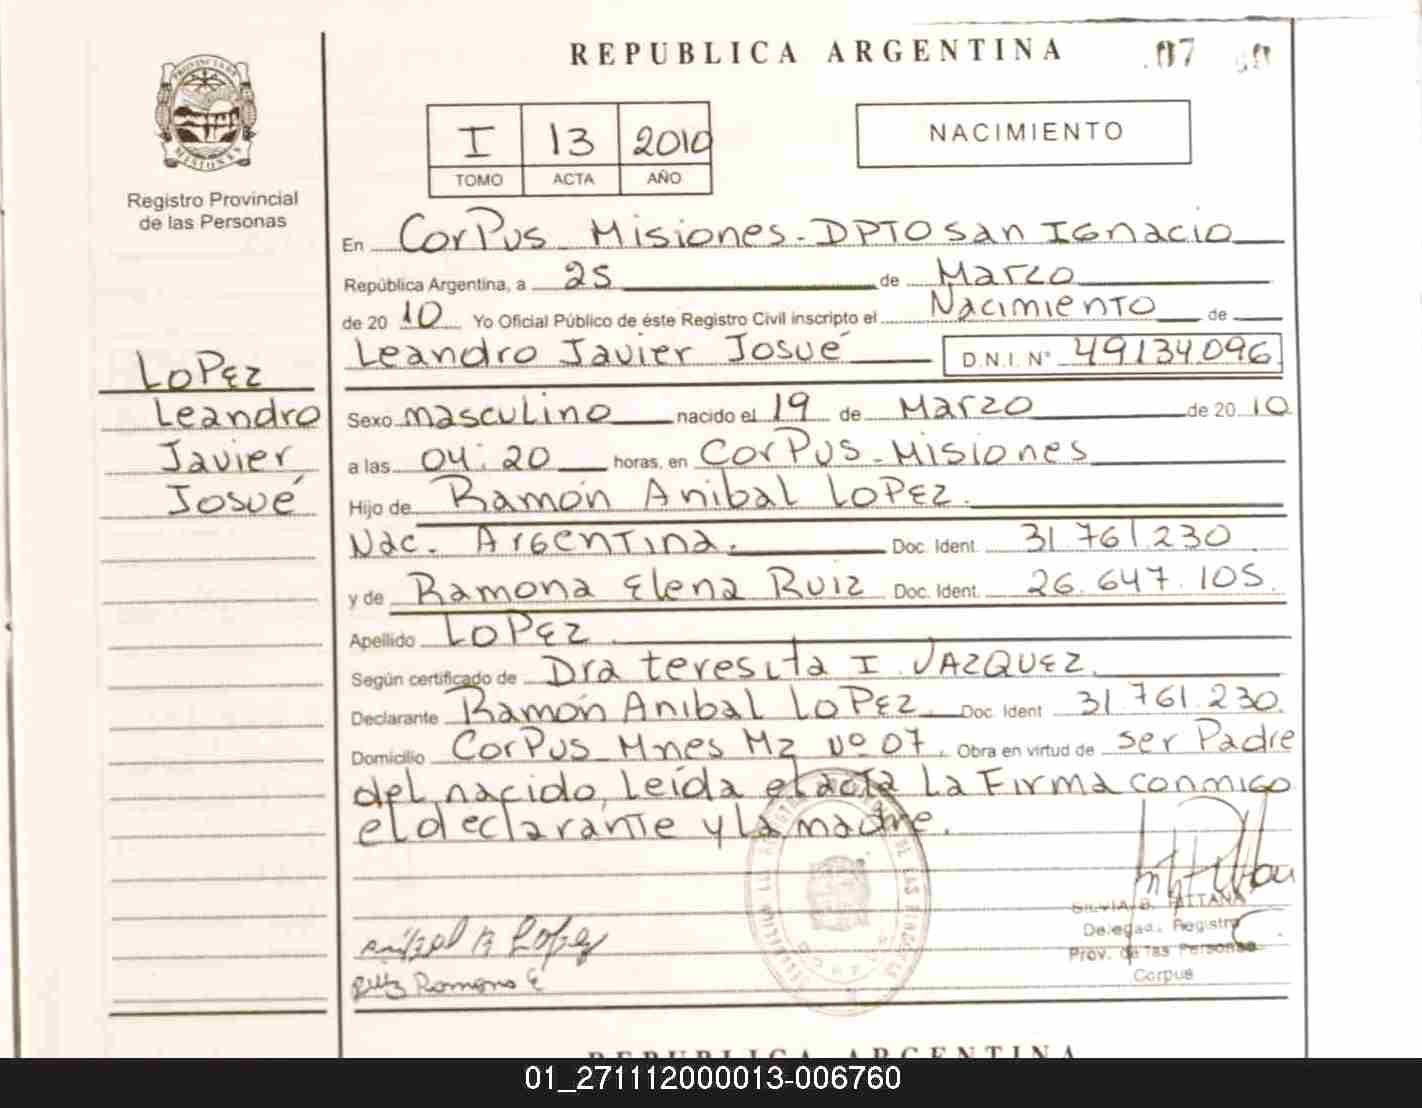 REPUBLICA ARGENTINA
07
I 13 2010
TOMO ACTA AÑO
NACIMIENTO
PROVINCIA DE MISIONES
Registro Provincial
de las Personas
LOPEZ
Leandro
Javier
Josué
En Corpus - Misiones - DPTO San Ignacio
República Argentina, a 25 de Marzo
de 20 10 Yo Oficial Público de éste Registro Civil inscripto el Nacimiento de
Leandro Javier Josué D.N.I. N° 49134096
Sexo masculino nacido el 19 de Marzo de 20 10
a las 04:20 horas, en Corpus - Misiones
Hijo de Ramón Anibal LOPEZ.
Nac. Argentina. Doc. Ident. 31 761.230
y de Ramona Elena Ruiz Doc. Ident. 26.647.105.
Apellido LOPEZ
Según certificado de Dra teresita I. VAZQUEZ.
Declarante Ramón Anibal LOPEZ Doc. Ident 31.761.230.
Domicilio Corpus Mnes Mz Nº 07. Obra en virtud de ser Padre
del nacido, leída el acta la Firma conmigo
el declarante y la madre.
Anibal R Lopez
Ruiz Ramona E
SILVIA B. PATTANA
Delegad. Registro
Prov. de las Personas
Corpus
REPUBLICA ARGENTINA
01_271112000013-006760